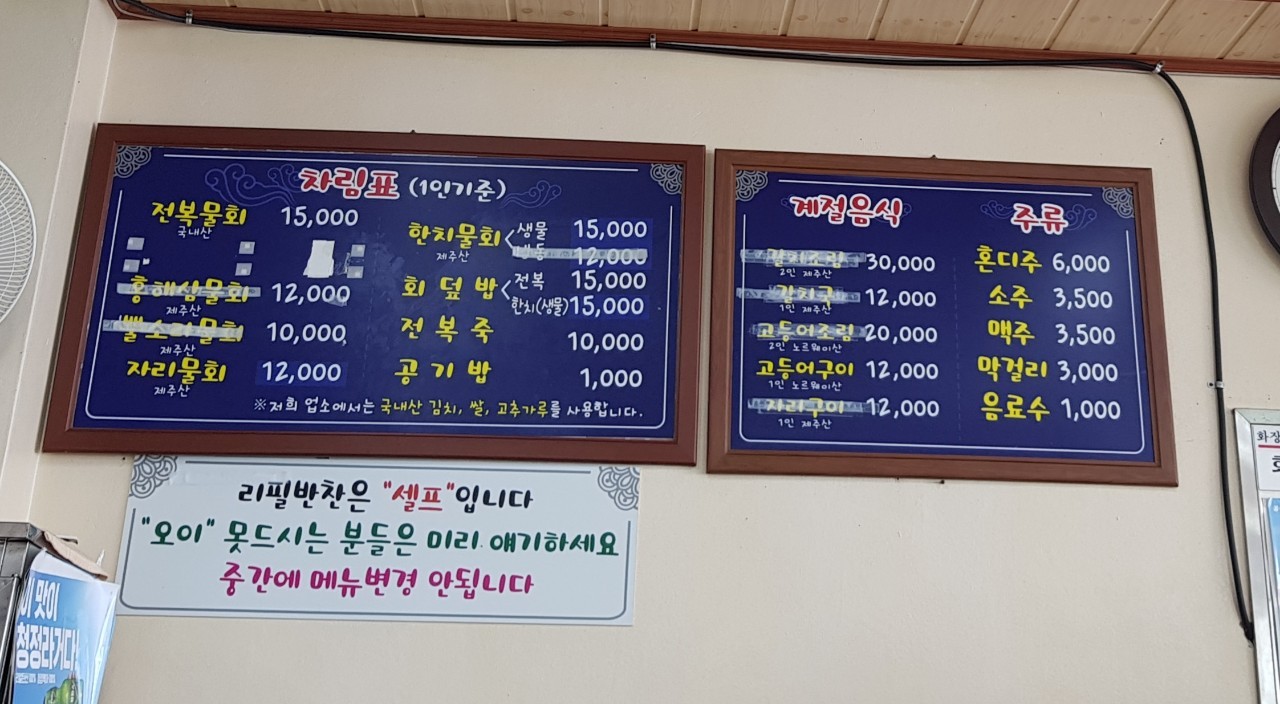 차림표 (1인기준)
전복물회 15,000
국내산
홍해삼물회 12,000
제주산
뿔소라물회 10,000
제주산
자리물회 12,000
제주산
한치물회 생물 15,000
제주산 냉동 12,000
회덮밥 전복 15,000
한치(생물) 15,000
전복죽 10,000
공기밥 1,000
※저희 업소에서는 국내산 김치, 쌀, 고추가루를 사용합니다.
계절음식
갈치조림 30,000
2인 제주산
갈치구이 12,000
1인 제주산
고등어조림 20,000
2인 노르웨이산
고등어구이 12,000
1인 노르웨이산
자리구이 12,000
1인 제주산
주류
혼디주 6,000
소주 3,500
맥주 3,500
막걸리 3,000
음료수 1,000
리필반찬은 "셀프"입니다
"오이" 못드시는 분들은 미리 얘기하세요
중간에 메뉴변경 안됩니다
이 맛이
청정라거다!
화장